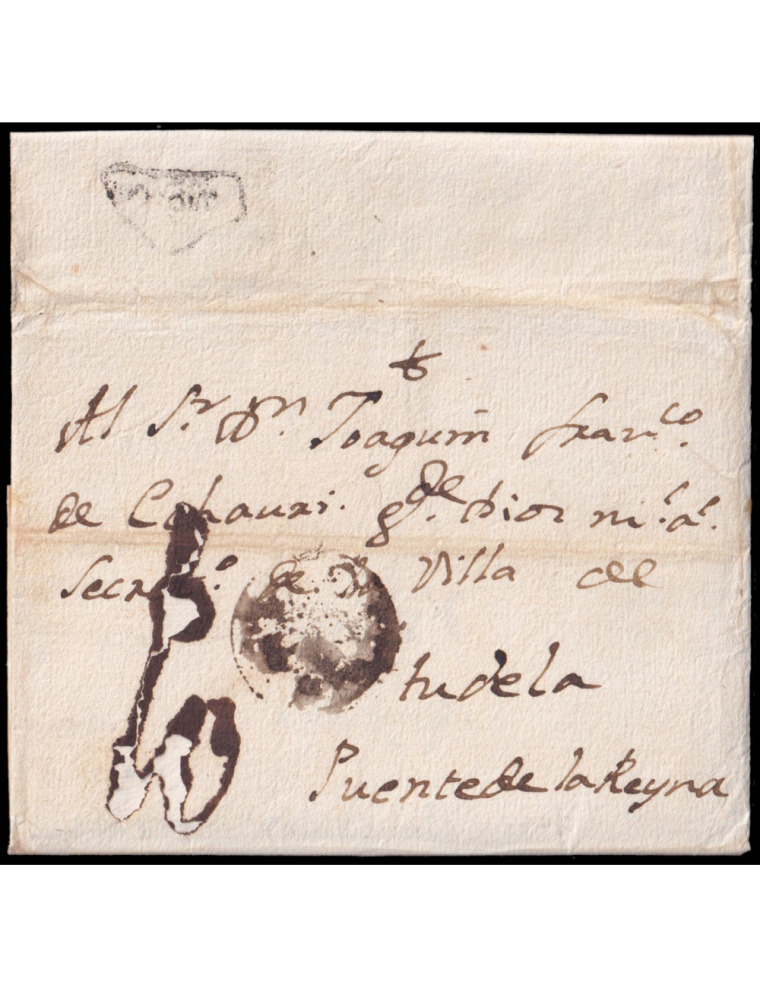 Al Sr. Dn. Joaquin Franco.
de gde. Dios ms. as.
Secreto. de la Villa de
tudela
Puente de la Reyna